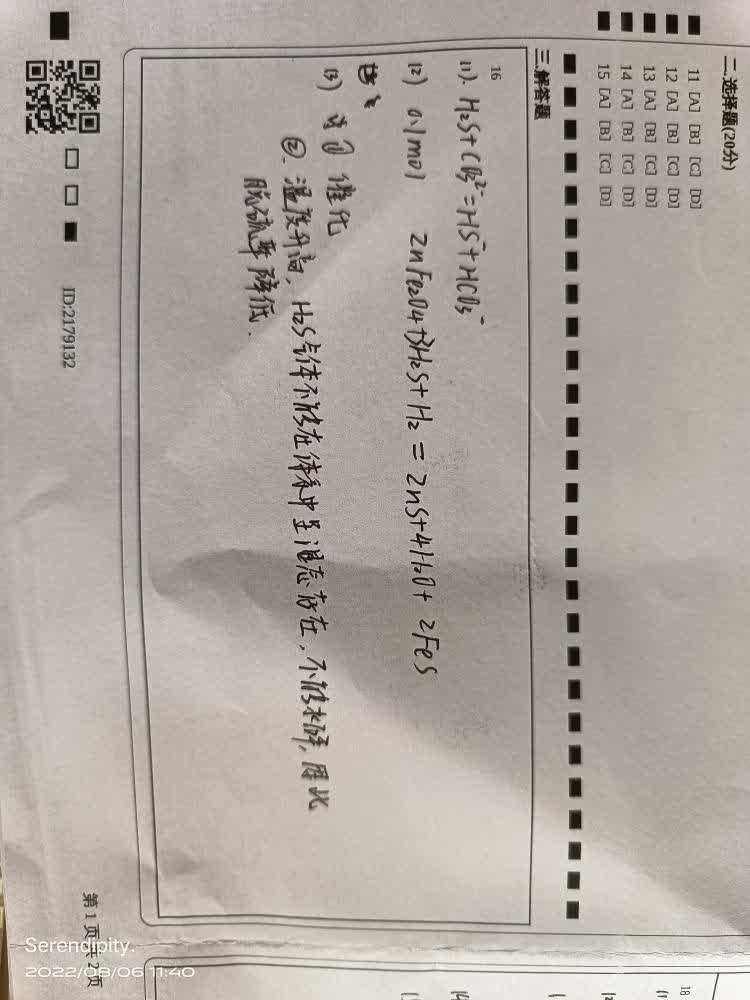 二.选择题(20分)
11 [A] [B] [C] [D]
12 [A] [B] [C] [D]
13 [A] [B] [C] [D]
14 [A] [B] [C] [D]
15 [A] [B] [C] [D]
三.解答题
16
(1). H₂S+CO₃²⁻=HS⁻+HCO₃⁻
(2) 0.1mol ZnFe₂O₄+3H₂S+H₂=ZnS+4H₂O+2FeS
(3) ① 催化
②. 温度升高, H₂S气体不能在体系中呈液态存在, 不能水解, 因此
脱硫率降低.
ID:2179132
第1页 共2页
18
Serendipity.
2022/08/06 11:40